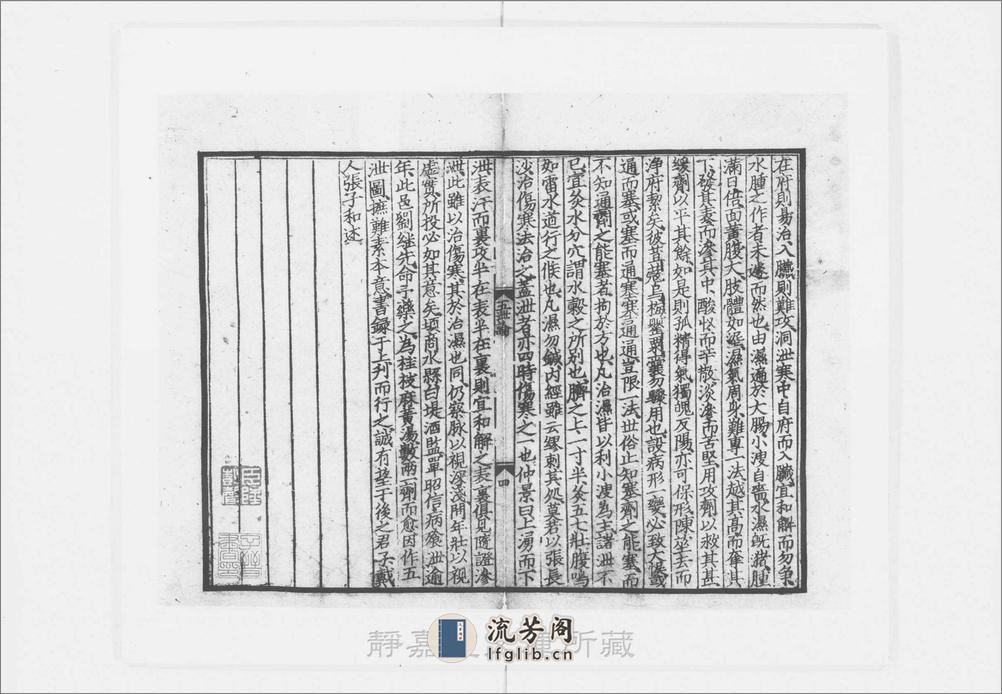 在府則易治入臟則難攻洞泄寒中自府而入臟宜和解而勿爭
水腫之作者未遽而然也由濕遁於大腸小溲自澁水濕旣豬腫
滿日倍面黃腹大肢體如泥濕氣周身難專一法越其高而奪其
下發其表而滲其中酸收而辛散淡滲而苦堅用攻劑以救其甚
緩劑以平其餘如是則孤精得氣獨魄反陽亦可保形陳莝去而
淨府潔矣彼豈蔻烏梅罌粟囊勿驟用也設病形一變必致大
通而塞或塞而通塞塞通通豈限一法世俗止知塞劑之能塞而
不知通劑之能塞者拘於方也凡治濕皆以利小溲為主諸泄不
已宜灸水分穴謂水穀之所別也臍之上一寸半灸五七壯腹鳴
如雷水道行之候也凡濕勿鍼內經雖云繆刺其処莫若以張長
沙治傷寒法治之蓋泄者亦四時傷寒之一也仲景曰上涌而下
五泄論
四
泄表汗而裏攻半在表半在裏則宜和解之表裏俱見隨證滲
泄此雖以治傷寒其於治濕也同仍察脉以視深淺問年壯以視
虛實所投必如其意矣頃商水縣白堤酒監單昭信病飱泄逾
年此邑劉継先命予藥之為桂枝麻黃湯數兩一劑而愈因作五
泄圖摭難素本意書録于上刋而行之誠有望于後之君子戴
人張子和述
靜嘉所藏
流芳阁
lfglib.cn